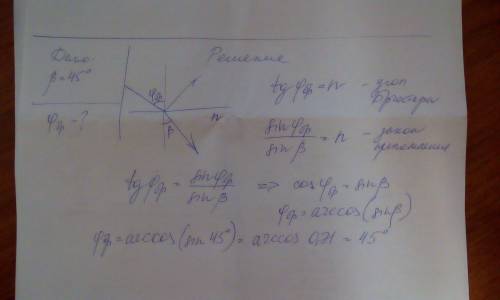 Дано: Решение
β=45°
φф - ?
φф
β
n
tg φф = n - угол Брюстера
sin φф / sin β = n - закон преломления
tg φф = sin φф / sin β => cos φф = sin β
φф = arccos(sin β)
φф = arccos(sin 45°) = arccos 0,71 = 45°